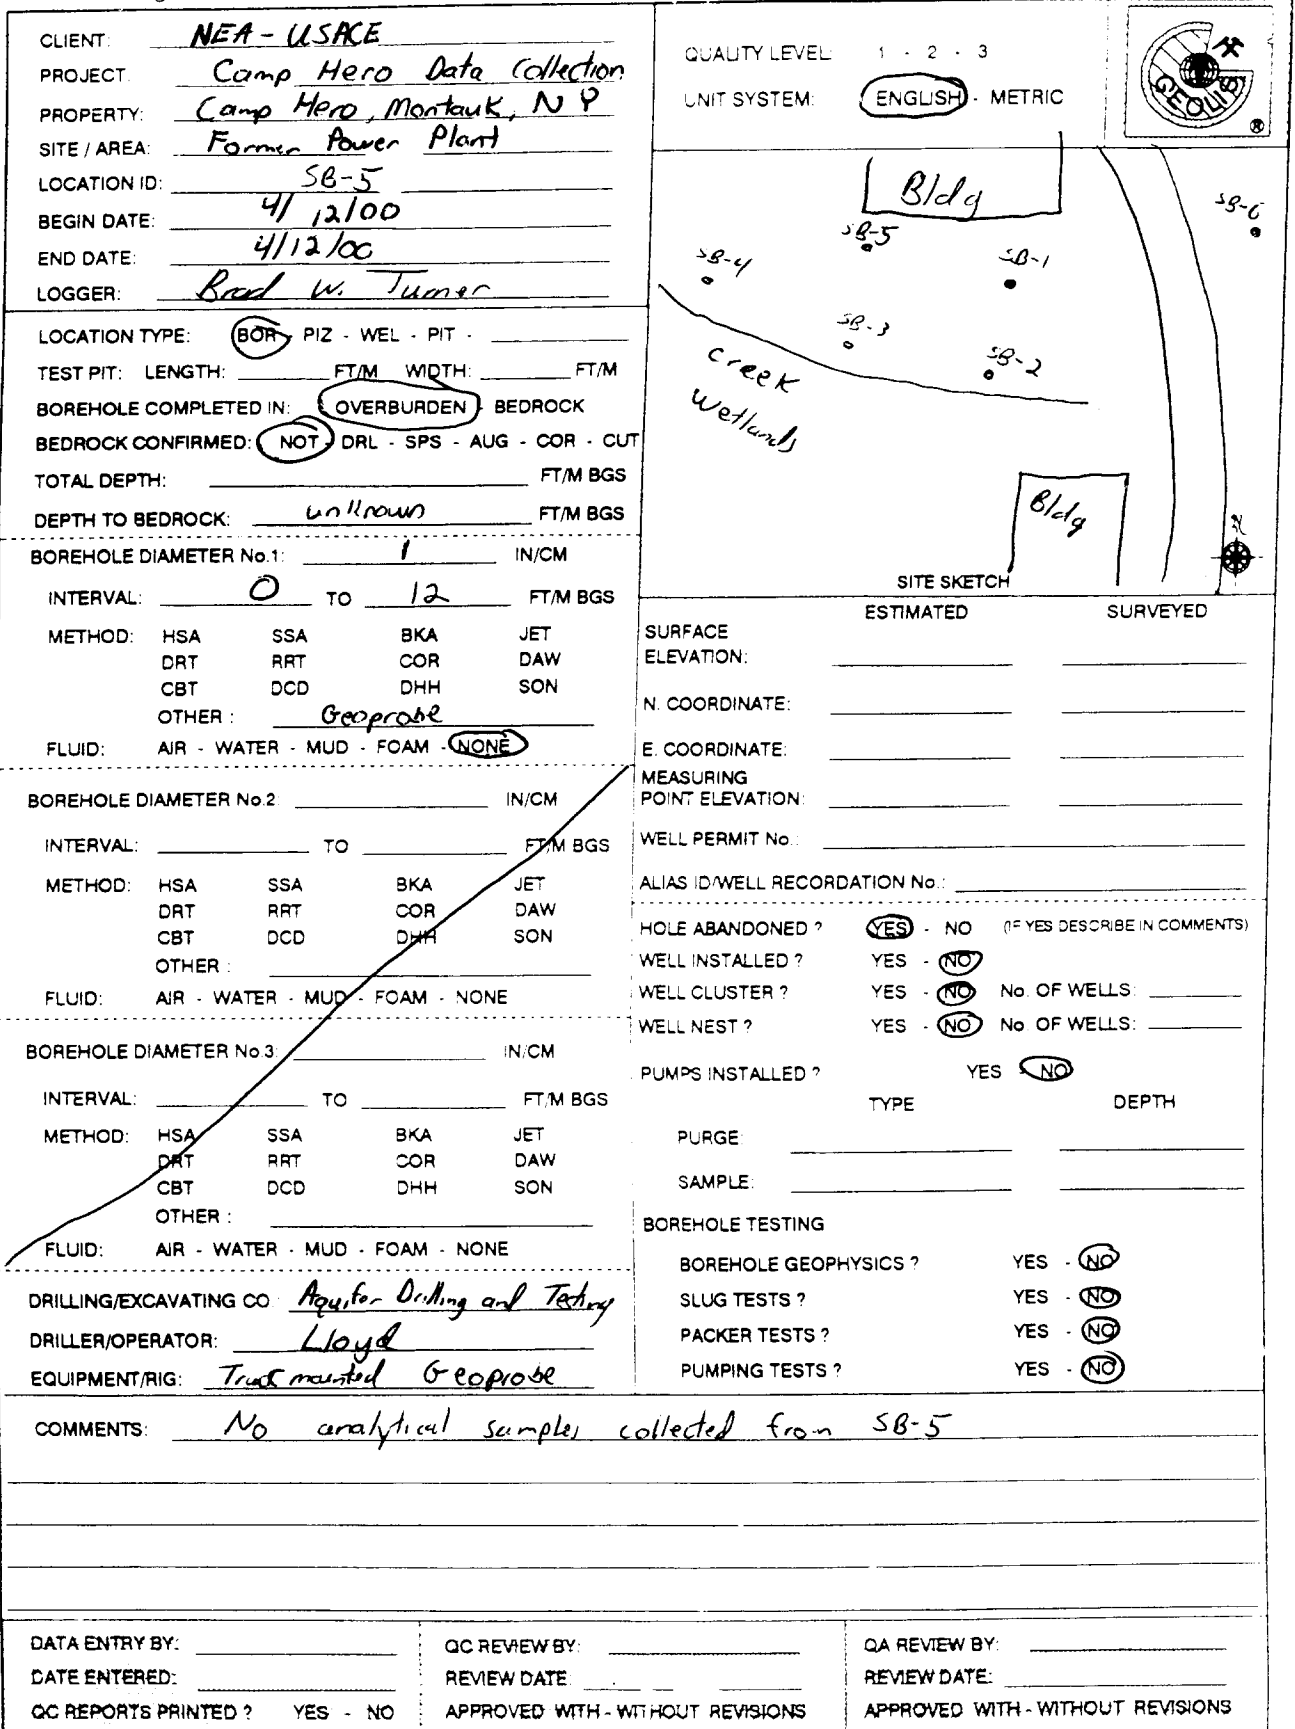 CLIENT: NEA - USACE
PROJECT: Camp Hero Data Collection
PROPERTY: Camp Hero, Montauk, NY
SITE / AREA: Former Power Plant
LOCATION ID: SB-5
BEGIN DATE: 4/12/00
END DATE: 4/12/00
LOGGER: Brad W. Turner
QUALITY LEVEL: 1 - 2 - 3
UNIT SYSTEM: ENGLISH - METRIC
GEOLIS ®
Bldg
SB-6
SB-5
SB-4
SB-1
SB-3
SB-2
Creek
Wetlands
Bldg
N
SITE SKETCH
LOCATION TYPE: BOR - PIZ - WEL - PIT -
TEST PIT: LENGTH: FT/M WIDTH: FT/M
BOREHOLE COMPLETED IN: OVERBURDEN - BEDROCK
BEDROCK CONFIRMED: NOT - DRL - SPS - AUG - COR - CUT
TOTAL DEPTH: FT/M BGS
DEPTH TO BEDROCK: unknown FT/M BGS
BOREHOLE DIAMETER No.1: 1 IN/CM
INTERVAL: 0 TO 12 FT/M BGS
METHOD: HSA SSA BKA JET
DRT RRT COR DAW
CBT DCD DHH SON
OTHER : Geoprobe
FLUID: AIR - WATER - MUD - FOAM - NONE
BOREHOLE DIAMETER No.2: IN/CM
INTERVAL: TO FT/M BGS
METHOD: HSA SSA BKA JET
DRT RRT COR DAW
CBT DCD DHH SON
OTHER :
FLUID: AIR - WATER - MUD - FOAM - NONE
BOREHOLE DIAMETER No.3: IN/CM
INTERVAL: TO FT/M BGS
METHOD: HSA SSA BKA JET
DRT RRT COR DAW
CBT DCD DHH SON
OTHER :
FLUID: AIR - WATER - MUD - FOAM - NONE
DRILLING/EXCAVATING CO. Aquifer Drilling and Testing
DRILLER/OPERATOR: Lloyd
EQUIPMENT/RIG: Truck mounted Geoprobe
ESTIMATED SURVEYED
SURFACE
ELEVATION:
N. COORDINATE:
E. COORDINATE:
MEASURING
POINT ELEVATION:
WELL PERMIT No.:
ALIAS ID/WELL RECORDATION No.:
HOLE ABANDONED ? YES - NO (IF YES DESCRIBE IN COMMENTS)
WELL INSTALLED ? YES - NO
WELL CLUSTER ? YES - NO No. OF WELLS:
WELL NEST ? YES - NO No. OF WELLS:
PUMPS INSTALLED ? YES - NO
TYPE DEPTH
PURGE:
SAMPLE:
BOREHOLE TESTING
BOREHOLE GEOPHYSICS ? YES - NO
SLUG TESTS ? YES - NO
PACKER TESTS ? YES - NO
PUMPING TESTS ? YES - NO
COMMENTS: No analytical samples collected from SB-5
DATA ENTRY BY:
DATE ENTERED:
QC REPORTS PRINTED ? YES - NO
QC REVIEW BY:
REVIEW DATE:
APPROVED WITH - WITHOUT REVISIONS
QA REVIEW BY:
REVIEW DATE:
APPROVED WITH - WITHOUT REVISIONS